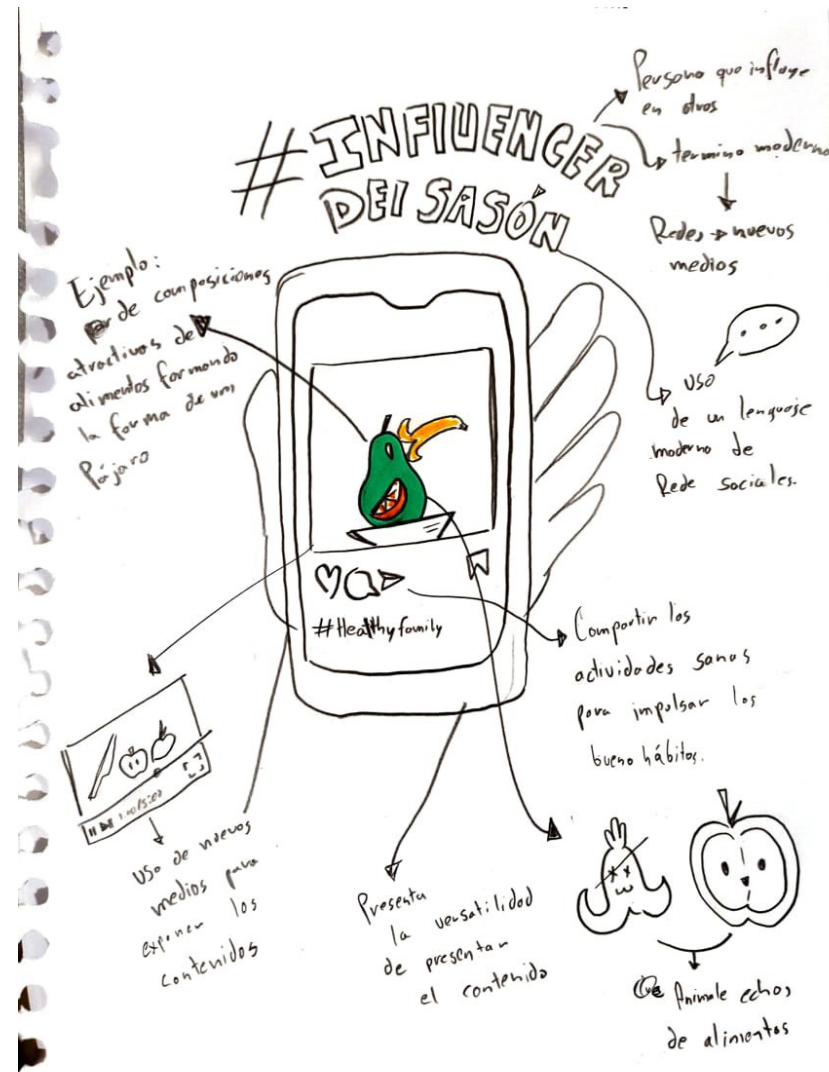 #INFlUENCER
DEl SASÓN
Persona que influye
en otros
termino moderno
Redes → nuevos
medios
Ejemplo:
de composiciones
atractivos de
alimentos formando
la forma de un
Pájaro
uso
de un lenguaje
moderno de
Rede Sociales.
#Healthyfamily
Compartir las
actividades sanas
para impulsar los
bueno hábitos.
1:00/5:00
Uso de nuevos
medios para
exponer los
contenidos
Presenta
la versatilidad
de presentar
el contenido
Animale echos
de alimentos